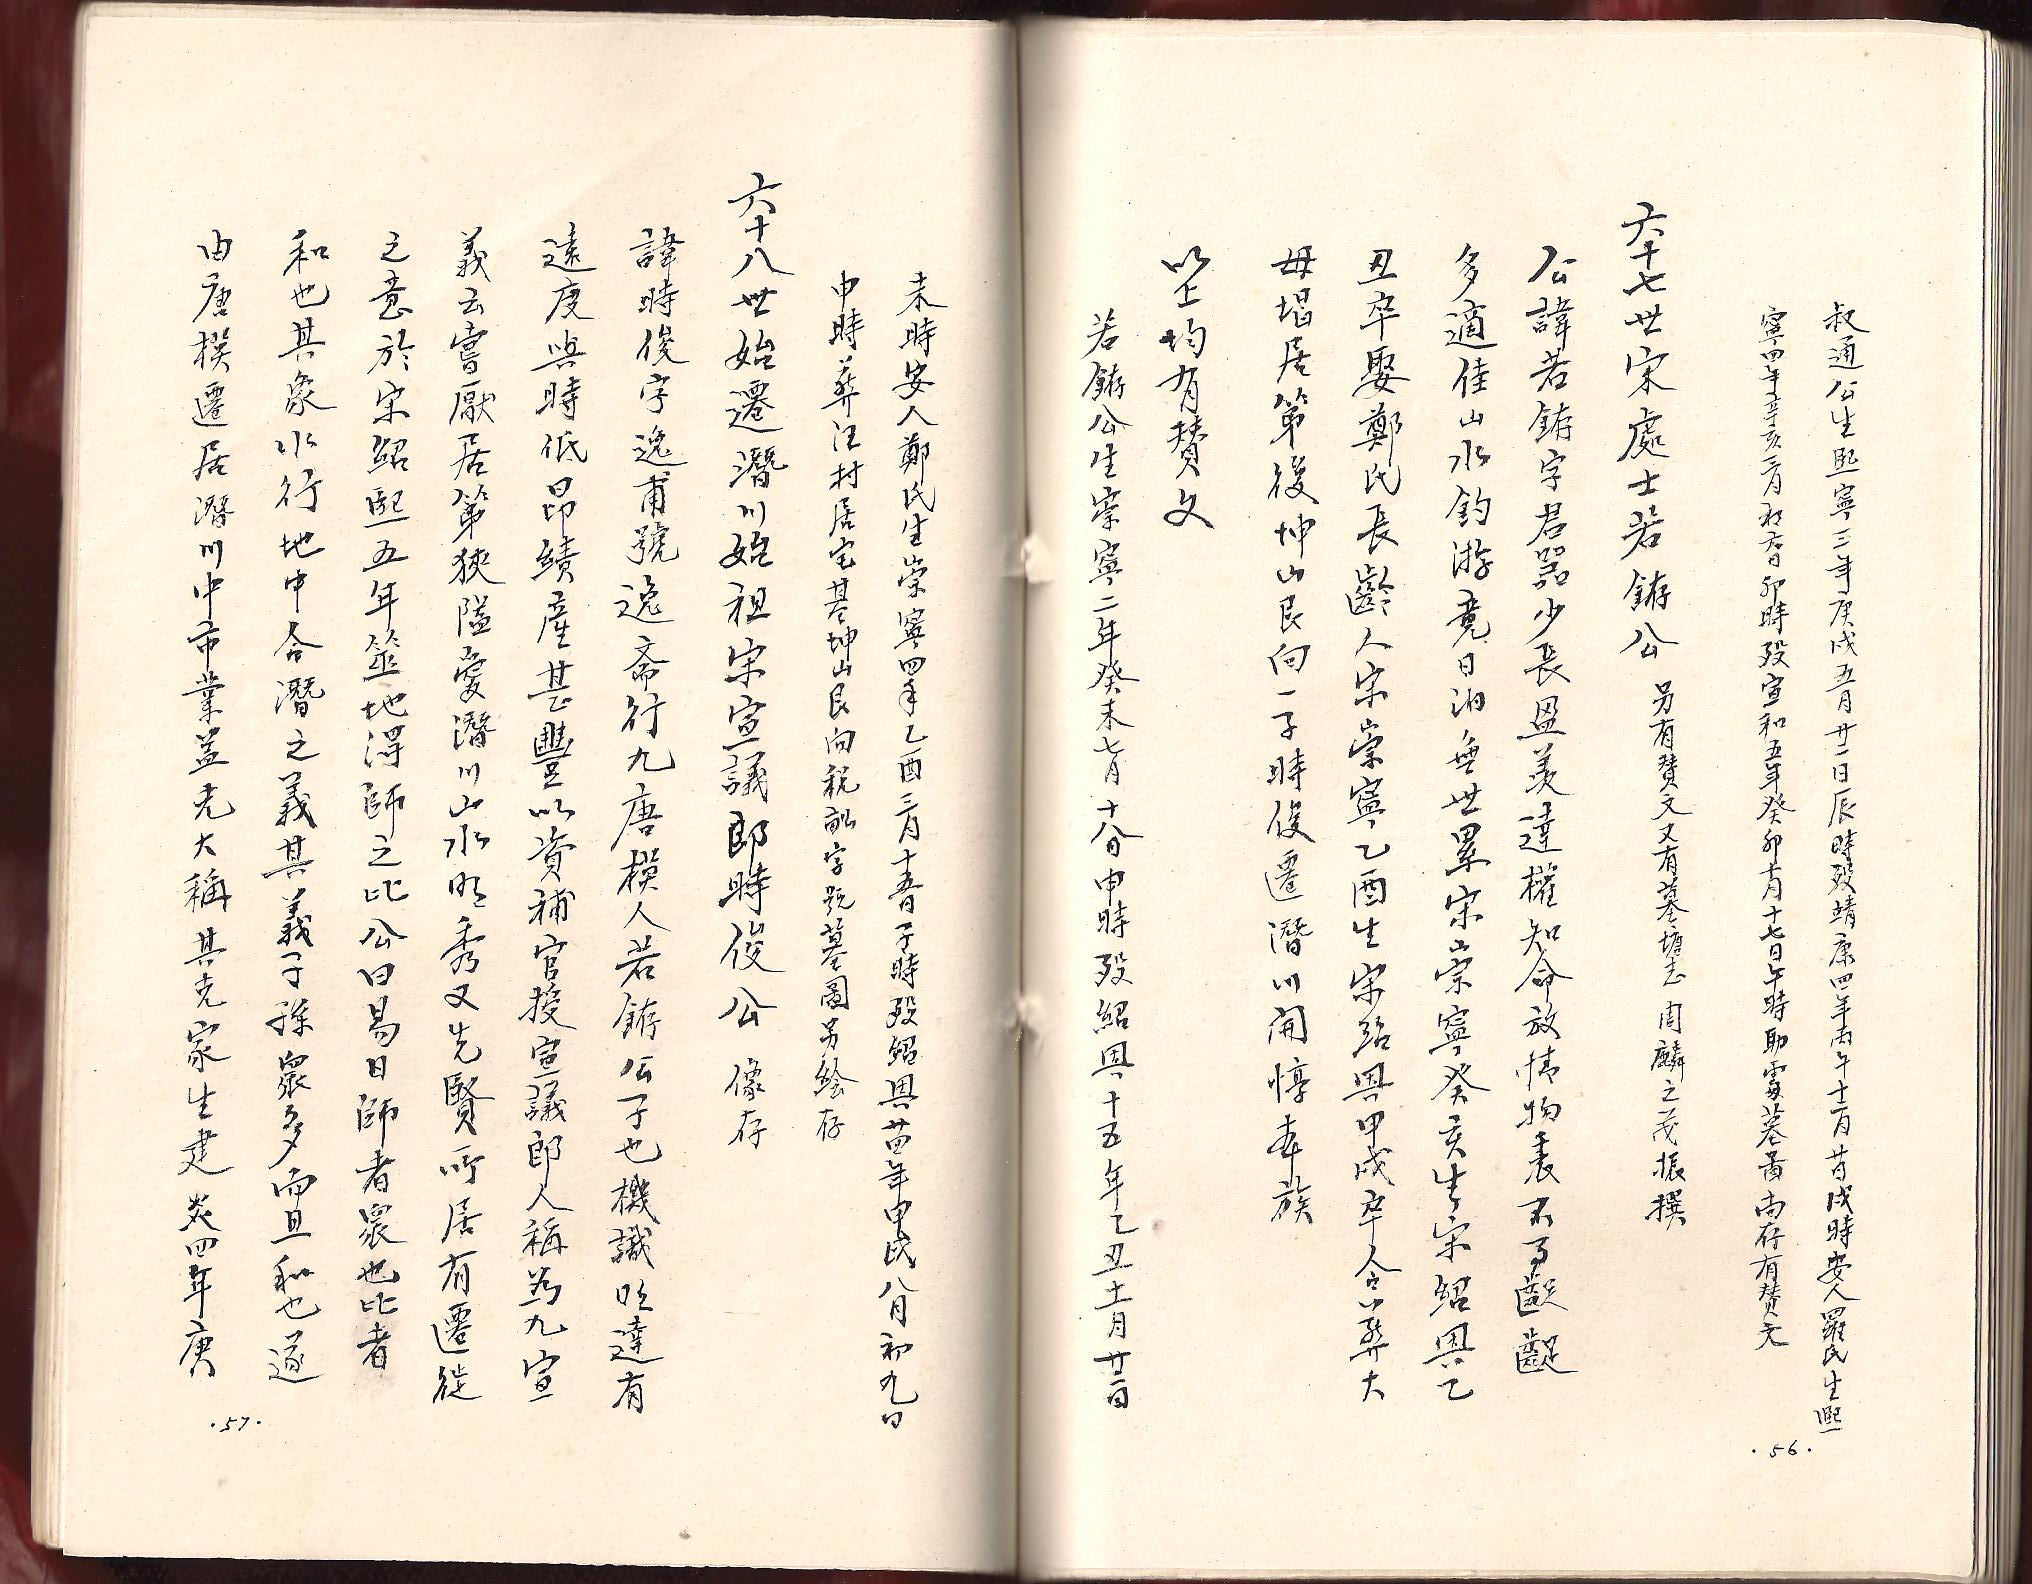 叔通公生熙寧三年庚戌五月廿一日辰時歿靖康四年丙午十二月廿日戌時安人羅氏生熙
寧四年辛亥三月初六日卯時歿宣和五年癸卯十月十七日午時助霄墓啚尚存有賛文
六十七世宋處士若錥公 另有賛文又有墓壙志 周麟之茂振撰
公諱若錥字君器少長盈羨達權知命放情物表不为齷齪
多適佳山水釣游竟日泊無世累宋崇寧癸亥生宋紹興乙
丑卒娶鄭氏長齡人宋崇寧乙酉生宋紹興甲戌卒合葬大
母堨居第後坤山艮向一子時俊遷潛川開惇本族
以上均有賛文
若錥公生崇寧二年癸未七月十八日申時歿紹興十五年乙丑十一月廿二日
未時安人鄭氏生崇寧四年乙酉三月十五日子時歿紹興廿四年甲戌八月初九日
申時葬汪村居宅基坤山艮向税 字號墓圖另繪存
六十八世始遷潛川始祖宋宣議郎時俊公 像存
諱時俊字逸甫號逸斋行九唐模人若錥公子也機識明達有
遠度與時低昂績產甚豐以資補官授宣議郎人稱為九宣
義云嘗厭居第狹隘愛潛川山水明秀又先賢所居有遷徙
之意於宋紹熙五年筮地得師之比公曰易曰師者眾也比者
和也其象水行地中合潛之義其義子孫眾多而且和也遂
由唐模遷居潛川中市業益充大稱其克家生建炎四年庚
·57·
·56·